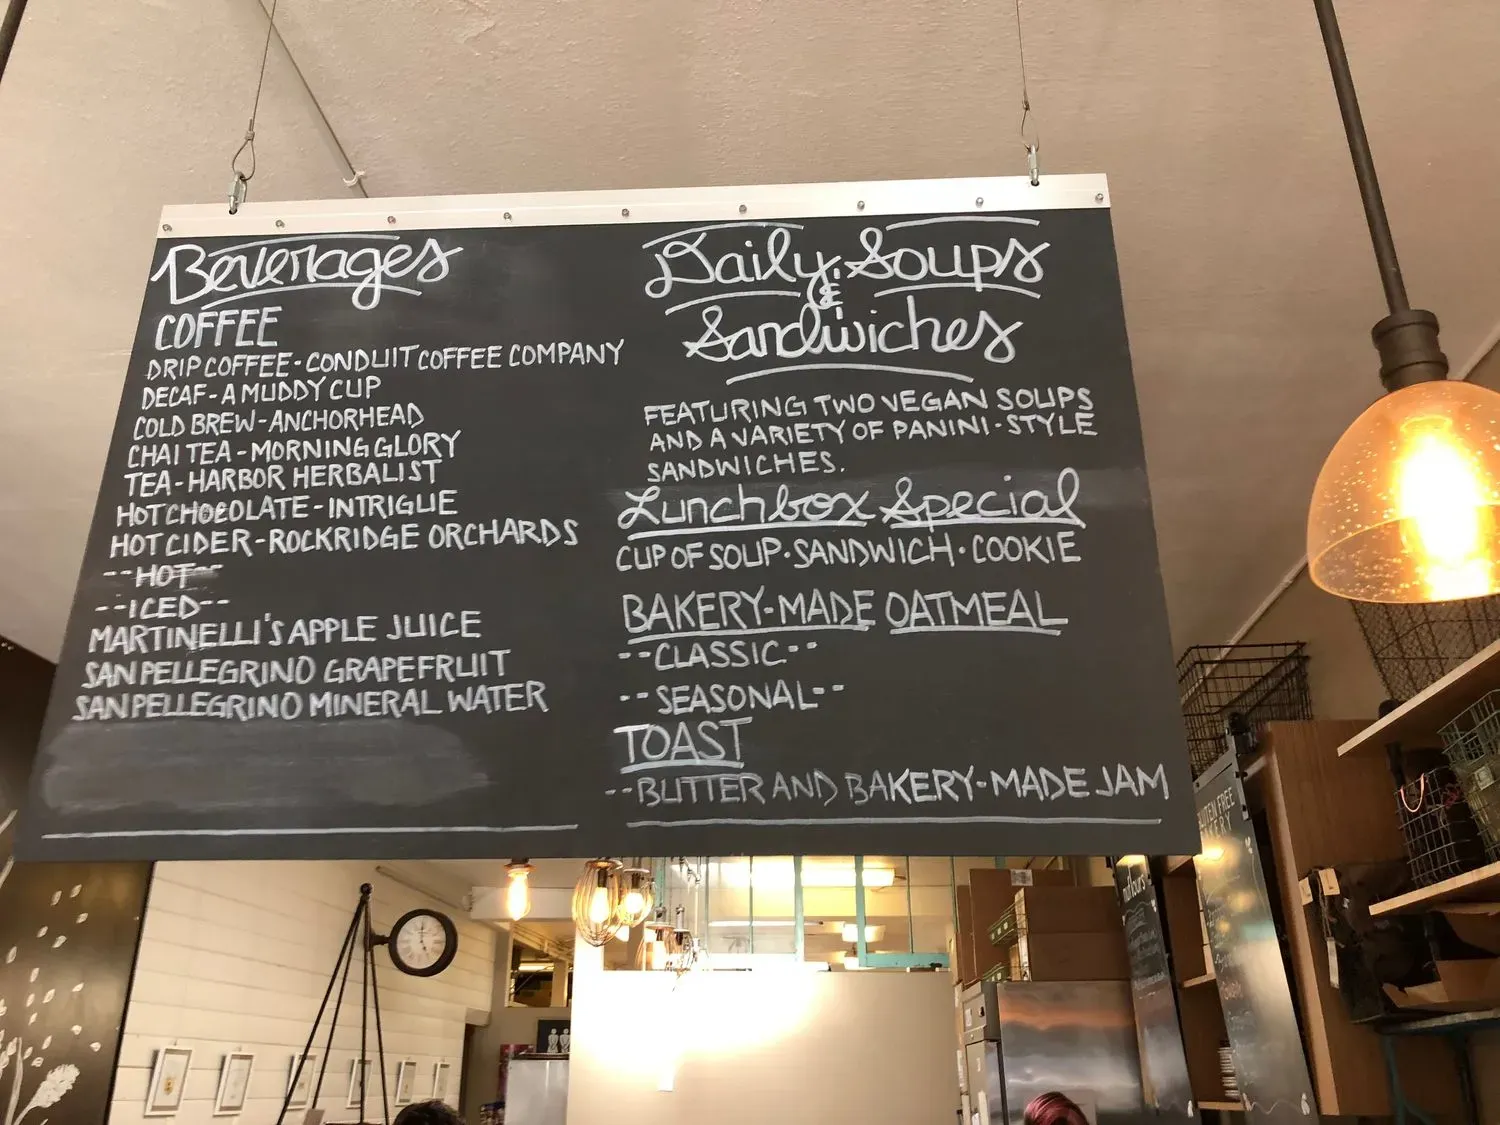 Beverages
COFFEE
DRIP COFFEE - CONDUIT COFFEE COMPANY
DECAF - A MUDDY CUP
COLD BREW - ANCHORHEAD
CHAI TEA - MORNING GLORY
TEA - HARBOR HERBALIST
HOT CHOCOLATE - INTRIGUE
HOT CIDER - ROCKRIDGE ORCHARDS
--HOT--
--ICED--
MARTINELLI'S APPLE JUICE
SAN PELLEGRINO GRAPEFRUIT
SAN PELLEGRINO MINERAL WATER
Daily Soups
&
Sandwiches
FEATURING TWO VEGAN SOUPS
AND A VARIETY OF PANINI-STYLE
SANDWICHES.
Lunchbox Special
CUP OF SOUP · SANDWICH · COOKIE
BAKERY-MADE OATMEAL
--CLASSIC--
--SEASONAL--
TOAST
--BUTTER AND BAKERY-MADE JAM
FREE